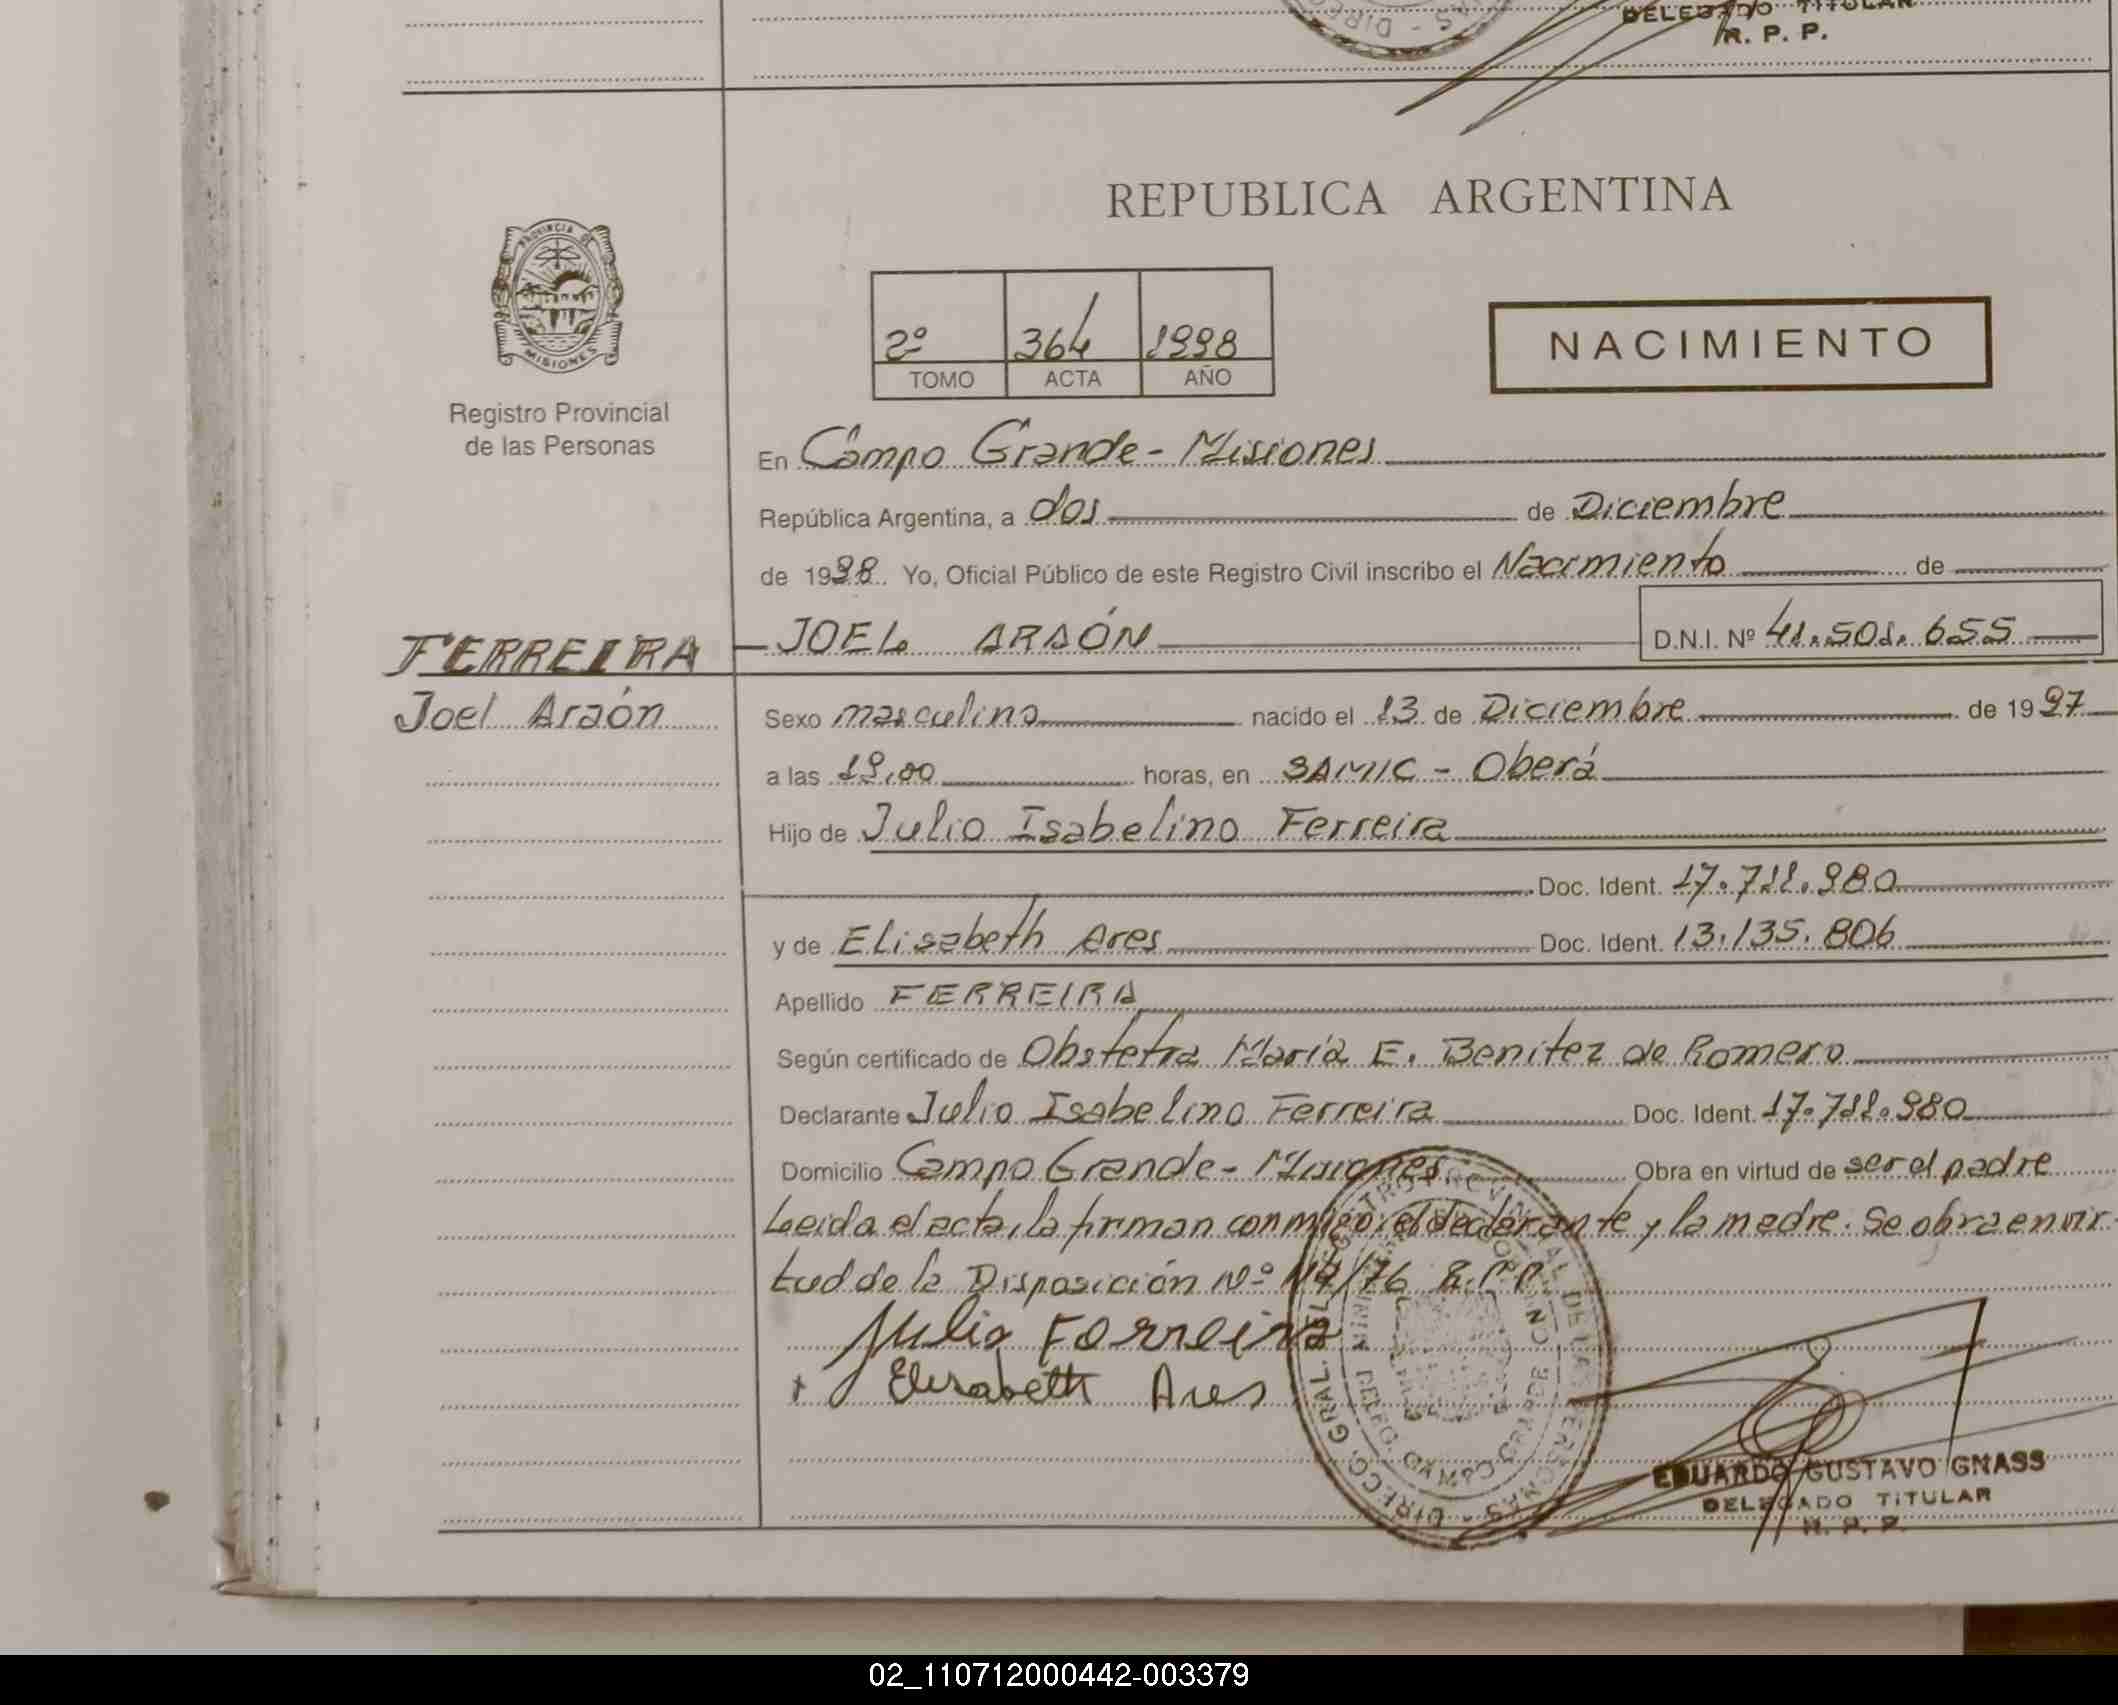 DELEGADO TITULAR
R. P. P.
REPUBLICA ARGENTINA
PROVINCIA DE
MISIONES
2º 364 1998
TOMO ACTA AÑO
NACIMIENTO
Registro Provincial
de las Personas
En Campo Grande - Misiones
República Argentina, a dos de Diciembre
de 1998. Yo, Oficial Público de este Registro Civil inscribo el Nacimiento de
FERREIRA JOEL ARAÓN D.N.I. Nº 41.501.655
Joel Araón Sexo masculino nacido el 13 de Diciembre de 1997
a las 19,00 horas, en SAMIC - Oberá
Hijo de Julio Isabelino Ferreira
Doc. Ident. 17.711.980
y de Elisabeth Ares Doc. Ident. 13.135.806
Apellido FERREIRA
Según certificado de Obstetra María E. Benitez de Romero
Declarante Julio Isabelino Ferreira Doc. Ident. 17.711.980
Domicilio Campo Grande - Misiones Obra en virtud de ser el padre
Leida el acta, la firman conmigo, el declarante y la madre. Se obra en vir-
tud de la Disposición Nº /76 R.P.P.
Julio Ferreira
Elisabeth Ares
DIRECC. GRAL. DEL REGISTRO PROVINCIAL DE LAS PERSONAS
DELEG. CAMPO GRANDE
EDUARDO GUSTAVO GNASS
DELEGADO TITULAR
R. P. P.
02_110712000442-003379